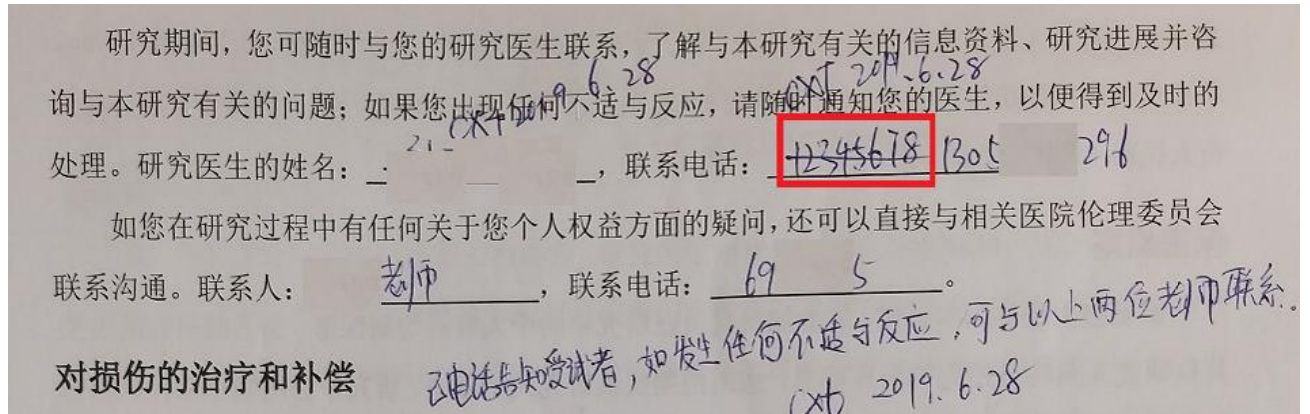 研究期间，您可随时与您的研究医生联系，了解与本研究有关的信息资料、研究进展并咨
2019.6.28
CXT 2019.6.28
询与本研究有关的问题；如果您出现任何不适与反应，请随时通知您的医生，以便得到及时的
处理。研究医生的姓名：，联系电话：12345678 1305 296
如您在研究过程中有任何关于您个人权益方面的疑问，还可以直接与相关医院伦理委员会
联系沟通。联系人：老师，联系电话：69 5。
对损伤的治疗和补偿
已电话告知受试者，如发生任何不适与反应，可与以上两位老师联系。
CXT 2019.6.28